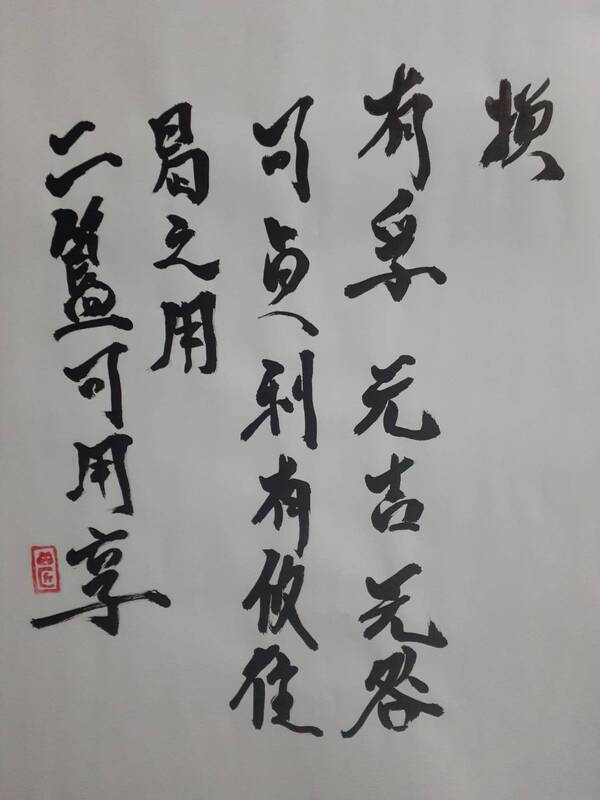 損
有孚 元吉 无咎
可貞 利有攸往
曷之用
二簋可用享